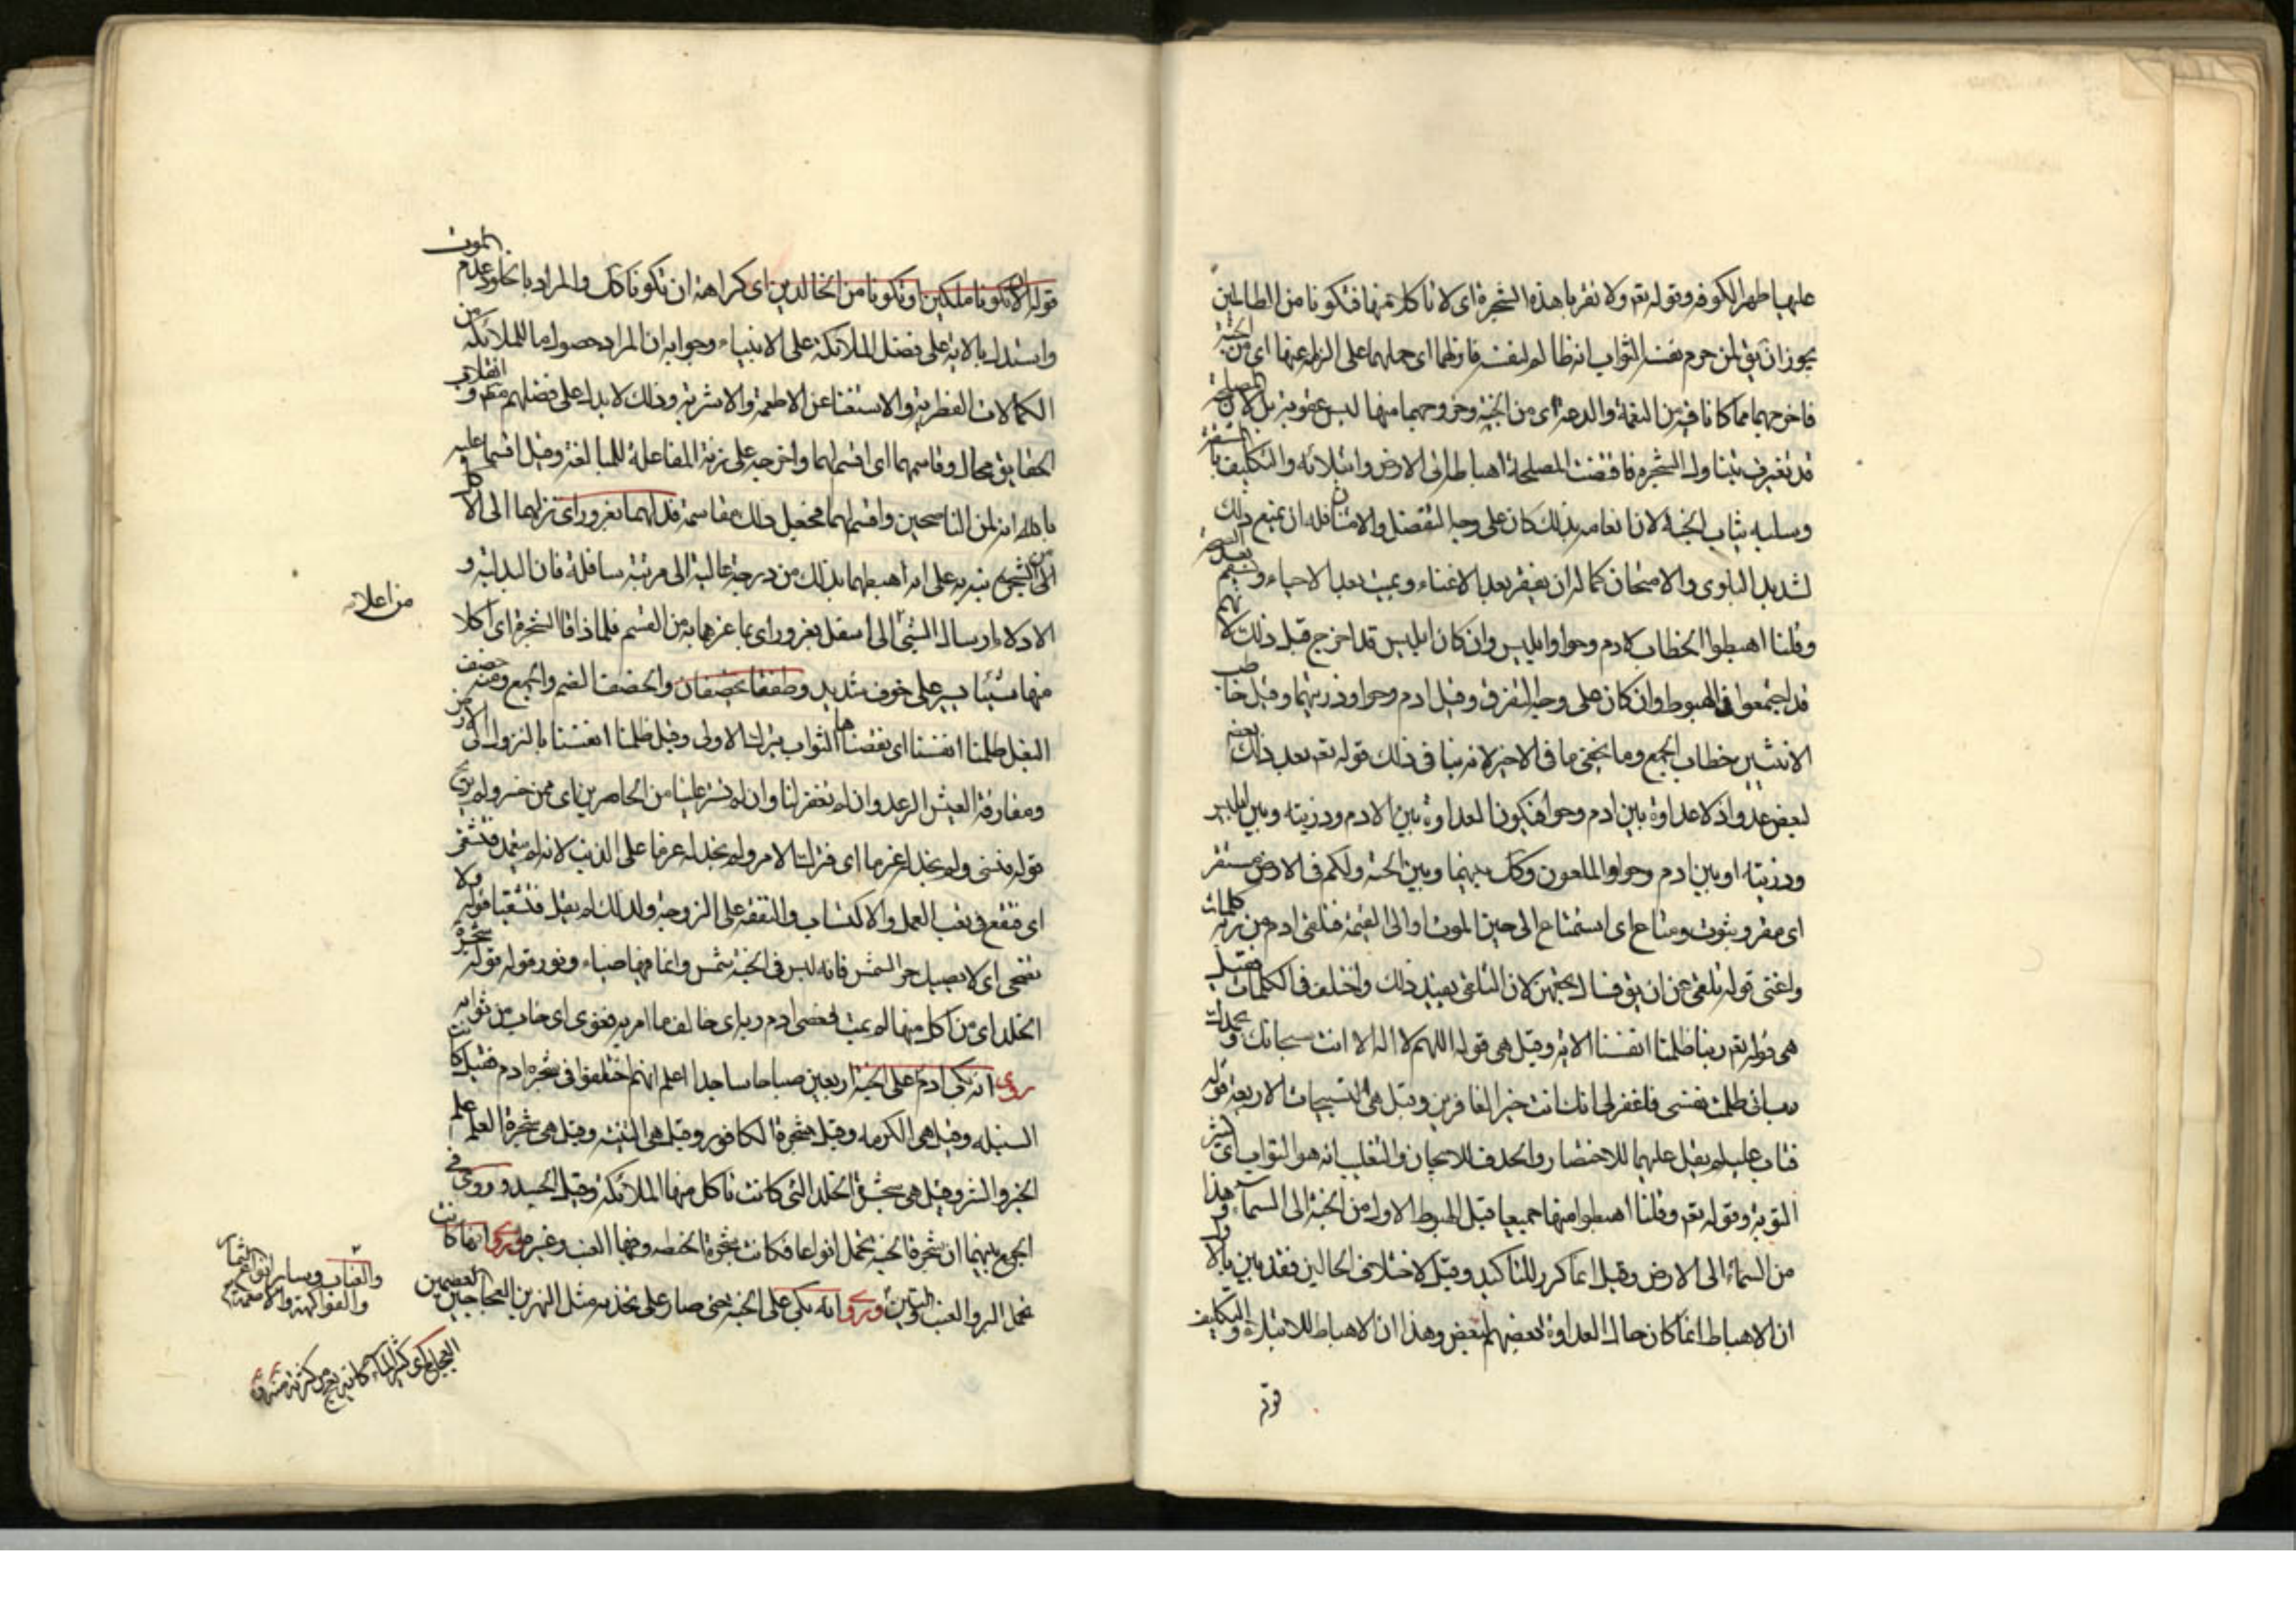 عليهما ظهر الكوفه وقوله تعه ولا تقربا هذه الشجرة اى لا تاكلا منها فتكونا من الظالمين
يجوز ان يق لمن حرم نفسه الثواب انه ظالم لنفسه فازلهما اى حملهما على الزلة عنها اى من الجنة
فاخرجهما مما كانا فيه من النعمة والدعة اى من الجنة وخروجهما منها ليس عقوبة بل لان المصلحة
قد تغيرت بتناول الشجره فاقتضت المصلحة اهباطه الى الارض وابتلائه والتكليف بالمشقة
وسلبه ثياب الجنة لان انعامه بذلك كان على وجه التفضل والامتنان فله ان يمنع ذلك
لشديد البلوى والامتحان كما له ان يفقر بعد الاغناء ويميت بعد الاحياء ويسقم بعد الصحة
وقلنا اهبطوا الخطاب لادم وحوا وابليس وان كان ابليس قد اخرج قبل ذلك لانهم
قد اجتمعوا فى الهبوط وان كان على وجه التفرق وقيل ادم وحوا وذريتهما وقيل خاطب
الاثنين خطاب الجمع وما يخفى ما فى الاخير لانه ينافى ذلك قوله تعه بعد ذلك بعضكم
لبعض عدو اذ لا عداوة بين ادم وحوا فيكون العداوة بين الادم وذريته وبين ابليس
وذريته او بين ادم وحوا والملعون وكل بينهما وبين الحية ولكم فى الارض مستقر
اى مقر وثبوت ومتاع اى استمتاع الى حين الموت او الى القيمة فتلقى ادم من ربه كلمات
واغنى قوله تلقى عن ان يق فسال بحقهن لان التلقى يفيد ذلك واختلف فى الكلمات فقيل
هى قوله تعه ربنا ظلمنا انفسنا الاية وقيل هى قوله اللهم لا اله الا انت سبحانك وبحمدك
رب انى ظلمت نفسى فاغفر لى انك انت خير الغافرين وقيل هى التسبيحات الاربعة قوله
فتاب عليه لم يقل عليهما للاختصار والحذف للايجاز والتغليب انه هو التواب اى كثير
التوبة وقوله تعه وقلنا اهبطوا منها جميعا قيل الهبوط الاول من الجنة الى السماء وهذا
من السماء الى الارض وقيل انما كرر للتاكيد وقيل لاختلاف الحالين فقد بين بالاول
ان الاهباط انما كان حال العداوة بعضهم لبعض وهذا ان الاهباط للابتلاء والتكليف
قوله
قوله الا ان تكونا ملكين او تكونا من الخالدين اى كراهة ان تكونا كك والمراد بالخلود عدم الموت
واستدل بالاية على فضل الملائكة على الانبياء وجوابه ان المراد حصول ما للملائكة من
الكمالات الفطرية والاستغناء عن الاطعمة والاشربة وذلك لا يدل على فضلهم مطلقا وانقلاب
الحقايق محال وقاسمهما اى اقسم لهما واخرجه على زنة المفاعلة للمبالغة وقيل اقسما عليه
بالله انه لمن الناصحين واقسم لهما فجعل ذلك مقاسمة فدلهما بغرور اى نزلهما الى الاكل
من الشجرة نبه به على انه اهبطهما بذلك من درجة عالية الى مرتبة سافلة فان التدلية و
الادلاء ارسال الشئ الى اسفل بغرور اى بما غرهما به من القسم فلما ذاقا الشجرة اى اكلا
من اعلا
منها شيئا يسير على خوف شديد وطفقا يخصفان والخصف الضم والجمع ومنه خصف
النعل ظلمنا انفسنا اى نقصناها الثواب بترك الاولى وقيل ظلمنا انفسنا بالنزول الى الارض
ومفارقة العيش الرغد وان لم تغفر لنا وان لم تستر علينا من الخاسرين اى ممن خسر ولم يربح
قوله فنسى ولم نجد له عزما اى فترك الامر ولم نجد له عزما على الذنب لانه لم يتعمد فتشقى
اى فتقع فى تعب العمل والاكتساب والنفقة على الزوجة ولذلك لم يقل فتشقيا قوله ولا
تضحى اى لا يصيبك حر الشمس فانه ليس فى الجنة شمس وانما فيها ضياء ونور قوله شجرة
الخلد اى من اكل منها لم يمت فعصى ادم ربه اى خالف ما امر به فغوى اى خاب من ثوابه
روى انه بكى ادم على الجنة اربعين صباحا ساجدا اعلم انهم اختلفوا فى شجرة ادم فقيل كانت
السنبله وقيل هى الكرمه وقيل شجرة الكافور وقيل هى التينة وقيل هى شجرة العلم علم
الخير والشر وقيل هى شجرة الخلد التى كانت تاكل منها الملائكة وقيل الحسد وروى فى
الجمع بينهما ان شجرة الجنة تحمل انواعا فكانت شجرة الحنطه وفيها العنب وغيره وروى انها كانت
تحمل البر والعنب والتين وروى انه بكى على الجنة حتى صار على خديه مثل النهرين العجاجين العظيمين
والعناب وساير انواع الثمار
والفواكهة والاطعمة